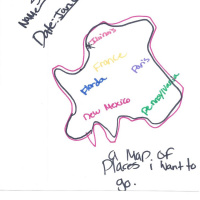 Name:
Date: Jan
Illinois
France
Paris
Florida
New Mexico
Pennsylvania
a Map of
Places i want to
go.